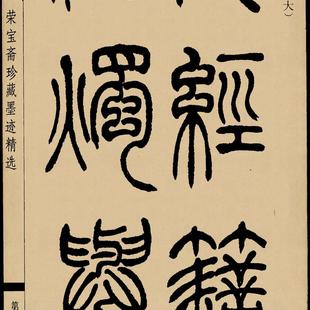 大）
經籍
燭
荣宝斋珍藏墨迹精选
第